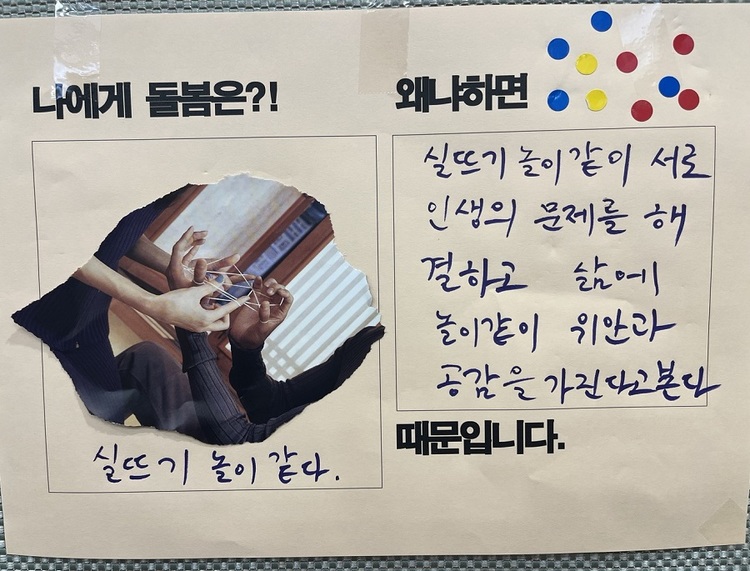 나에게 돌봄은?!
실뜨기 놀이 같다.
왜냐하면
실뜨기 놀이 같이 서로
인생의 문제를 해
결하고 삶에
놀이같이 위안과
공감을 가진다고본다
때문입니다.